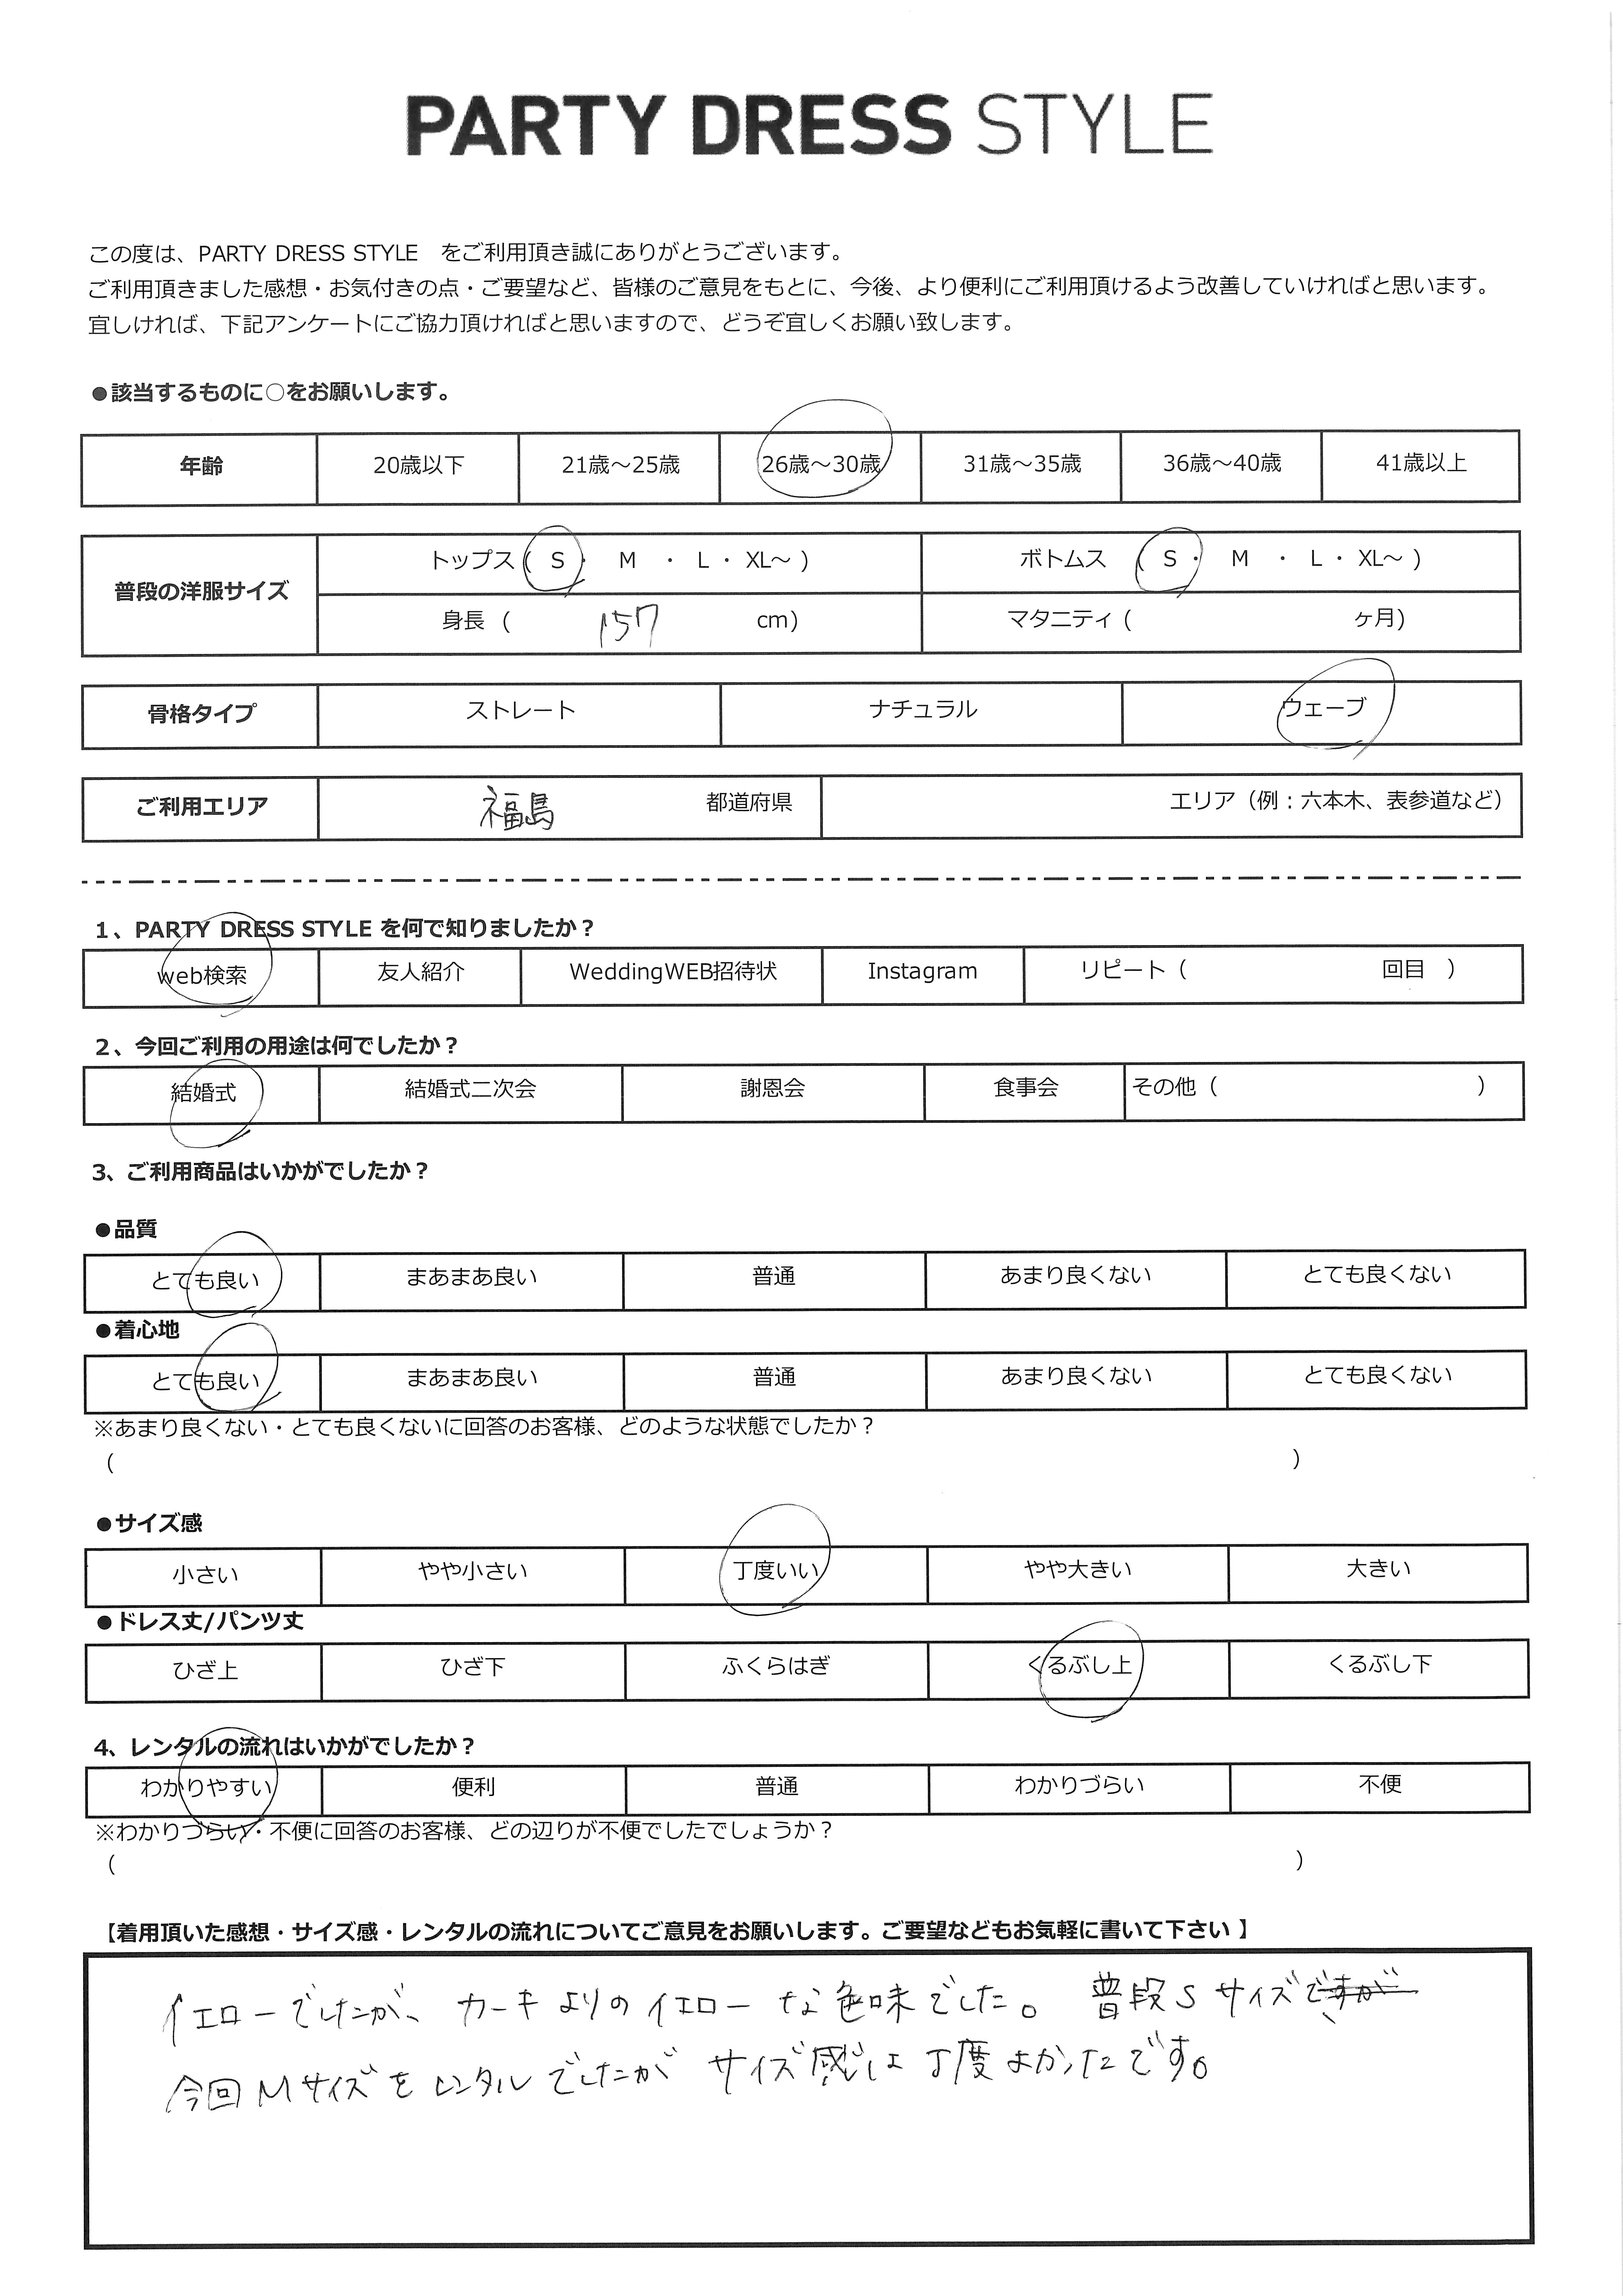 PARTY DRESS STYLE
この度は、PARTY DRESS STYLE　をご利用頂き誠にありがとうございます。
ご利用頂きました感想・お気付きの点・ご要望など、皆様のご意見をもとに、今後、より便利にご利用頂けるよう改善していければと思います。
宜しければ、下記アンケートにご協力頂ければと思いますので、どうぞ宜しくお願い致します。
●該当するものに○をお願いします。
年齢 20歳以下 21歳～25歳 26歳～30歳 31歳～35歳 36歳～40歳 41歳以上
普段の洋服サイズ トップス ( S ・ M ・ L ・ XL～ ) ボトムス ( S ・ M ・ L ・ XL～ )
身長 ( 157 cm) マタニティ ( ヶ月)
骨格タイプ ストレート ナチュラル ウェーブ
ご利用エリア 福島 都道府県 エリア（例：六本木、表参道など）
1、PARTY DRESS STYLE を何で知りましたか？
web検索 友人紹介 WeddingWEB招待状 Instagram リピート（ 回目 ）
2、今回ご利用の用途は何でしたか？
結婚式 結婚式二次会 謝恩会 食事会 その他（ ）
3、ご利用商品はいかがでしたか？
●品質
とても良い まあまあ良い 普通 あまり良くない とても良くない
●着心地
とても良い まあまあ良い 普通 あまり良くない とても良くない
※あまり良くない・とても良くないに回答のお客様、どのような状態でしたか？
（ ）
●サイズ感
小さい やや小さい 丁度いい やや大きい 大きい
●ドレス丈/パンツ丈
ひざ上 ひざ下 ふくらはぎ くるぶし上 くるぶし下
4、レンタルの流れはいかがでしたか？
わかりやすい 便利 普通 わかりづらい 不便
※わかりづらい・不便に回答のお客様、どの辺りが不便でしたでしょうか？
（ ）
【着用頂いた感想・サイズ感・レンタルの流れについてご意見をお願いします。ご要望などもお気軽に書いて下さい 】
イエローでしたが、カーキよりのイエローな色味でした。普段Sサイズですが
今回Mサイズをレンタルでしたがサイズ感は丁度よかったです。